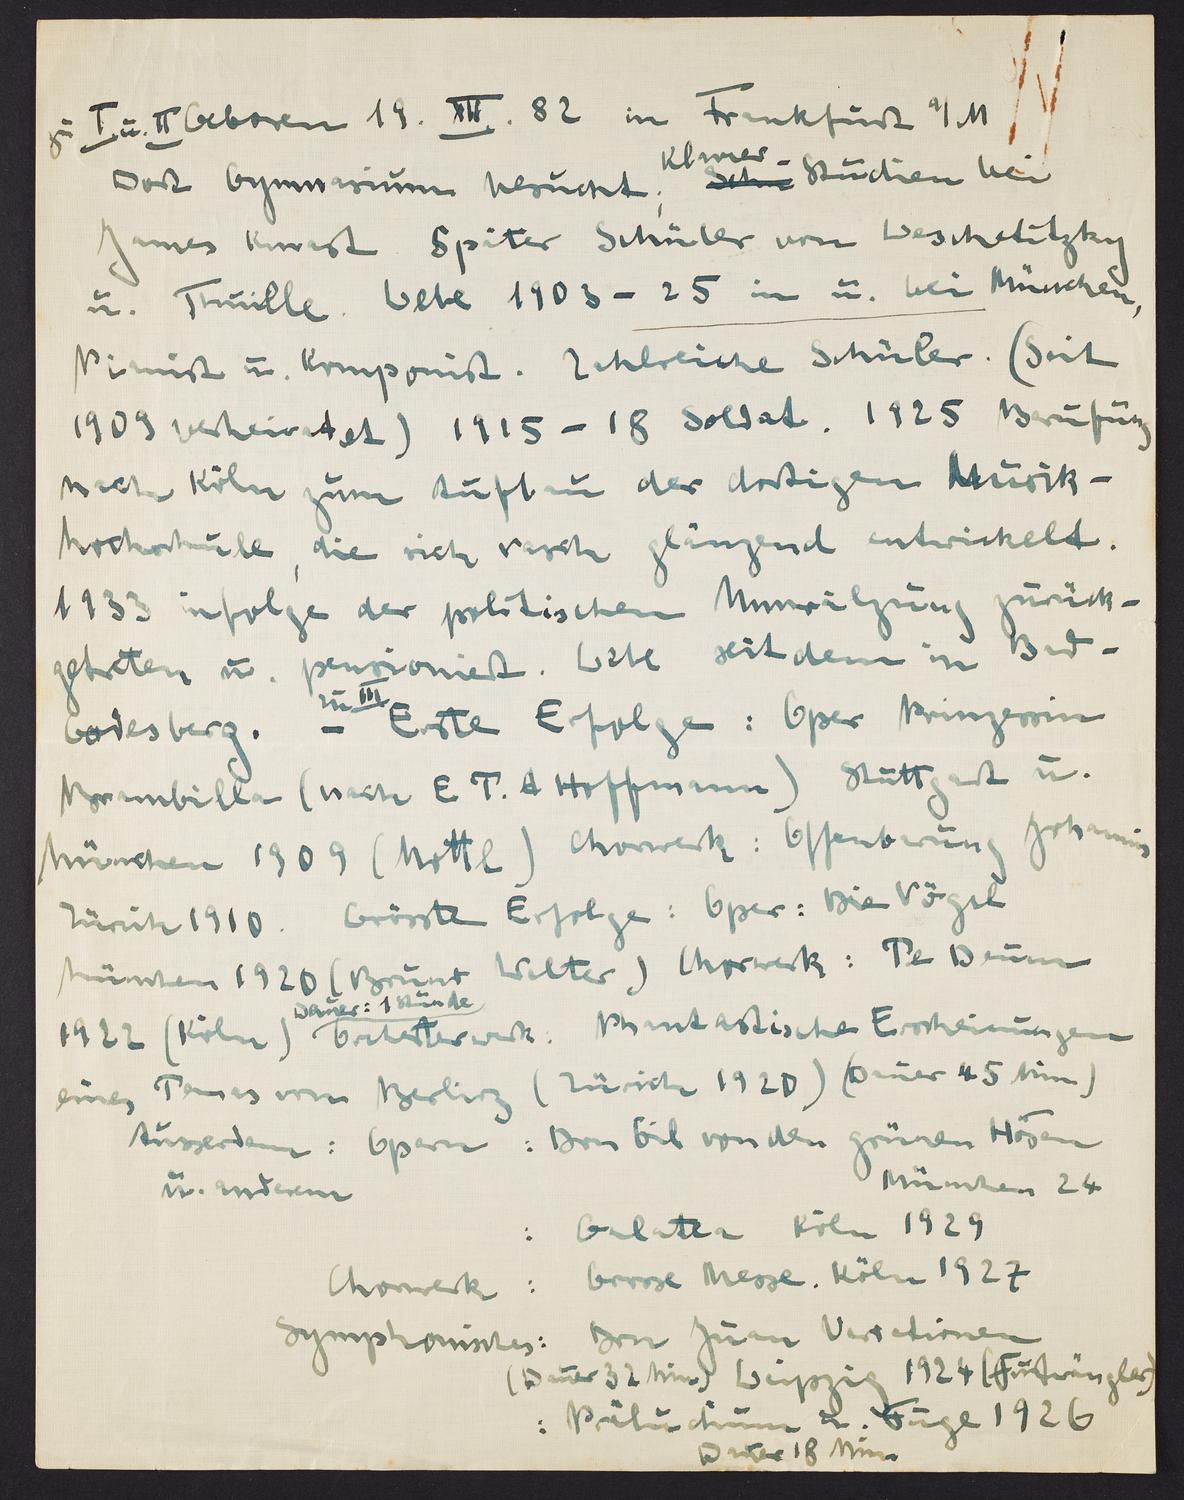 zu I u. II Geboren 19. XII. 82 in Frankfurt a/M
Dort Gymnasium besucht, Klavier- Studien bei
James Kwast Später Schüler von Leschetitzky
u. Thuille. Lebt 1903 – 25 in u. bei München,
Pianist u. Komponist. Zahlreiche Schüler. (Seit
1909 verheiratet) 1915 – 18 Soldat. 1925 Berufung
nach Köln zum Aufbau der dortigen Musik-
hochschule, die sich rasch glänzend entwickelt.
1933 infolge der politischen Umwälzung zurück-
getreten u. pensioniert. Lebt seitdem in Bad-
Godesberg. – zu III Erste Erfolge: Oper Prinzessin
Brambilla (nach E T. A Hoffmann) Stuttgart u.
München 1909 (Mottl) Chorwerk: Offenbarung Johannis
Zürich 1910. Grösste Erfolge: Oper: Die Vögel
München 1920 (Bruno Walter) Chorwerk: Te Deum
1922 (Köln) Dauer: 1 Stunde Orchesterwerk: Phantastische Erscheinungen
eines Temas von Berlioz (Zürich 1920) (Dauer 45 Min)
Ausserdem: Opern: Don Gil von den grünen Hosen
u. anderem München 24
: Galatea Köln 1929
Chorwerk: Grosse Messe. Köln 1927
Symphonisches: Don Juan Variationen
(Dauer 32 Min) Leipzig 1924 (Furtwängler)
: Präludium u. Fuge 1926
Dauer 18 Min